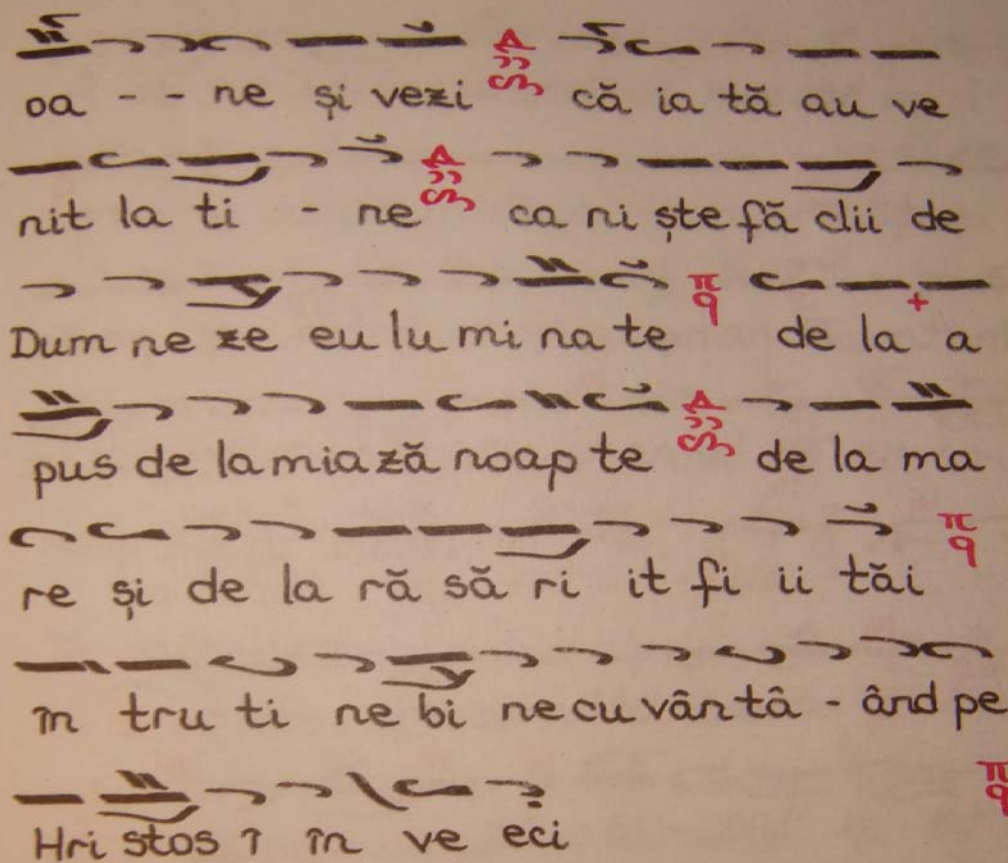 oa - - ne și vezi că ia tă au ve
nit la ti - ne ca ni ște fă clii de
Dum ne ze eu lu mi na te π q de la a
pus de la mia ză noap te de la ma
re și de la ră să ri it fi ii tăi π q
în tru ti ne bi ne cu vân tâ - ând pe
Hri stos î în ve eci π q